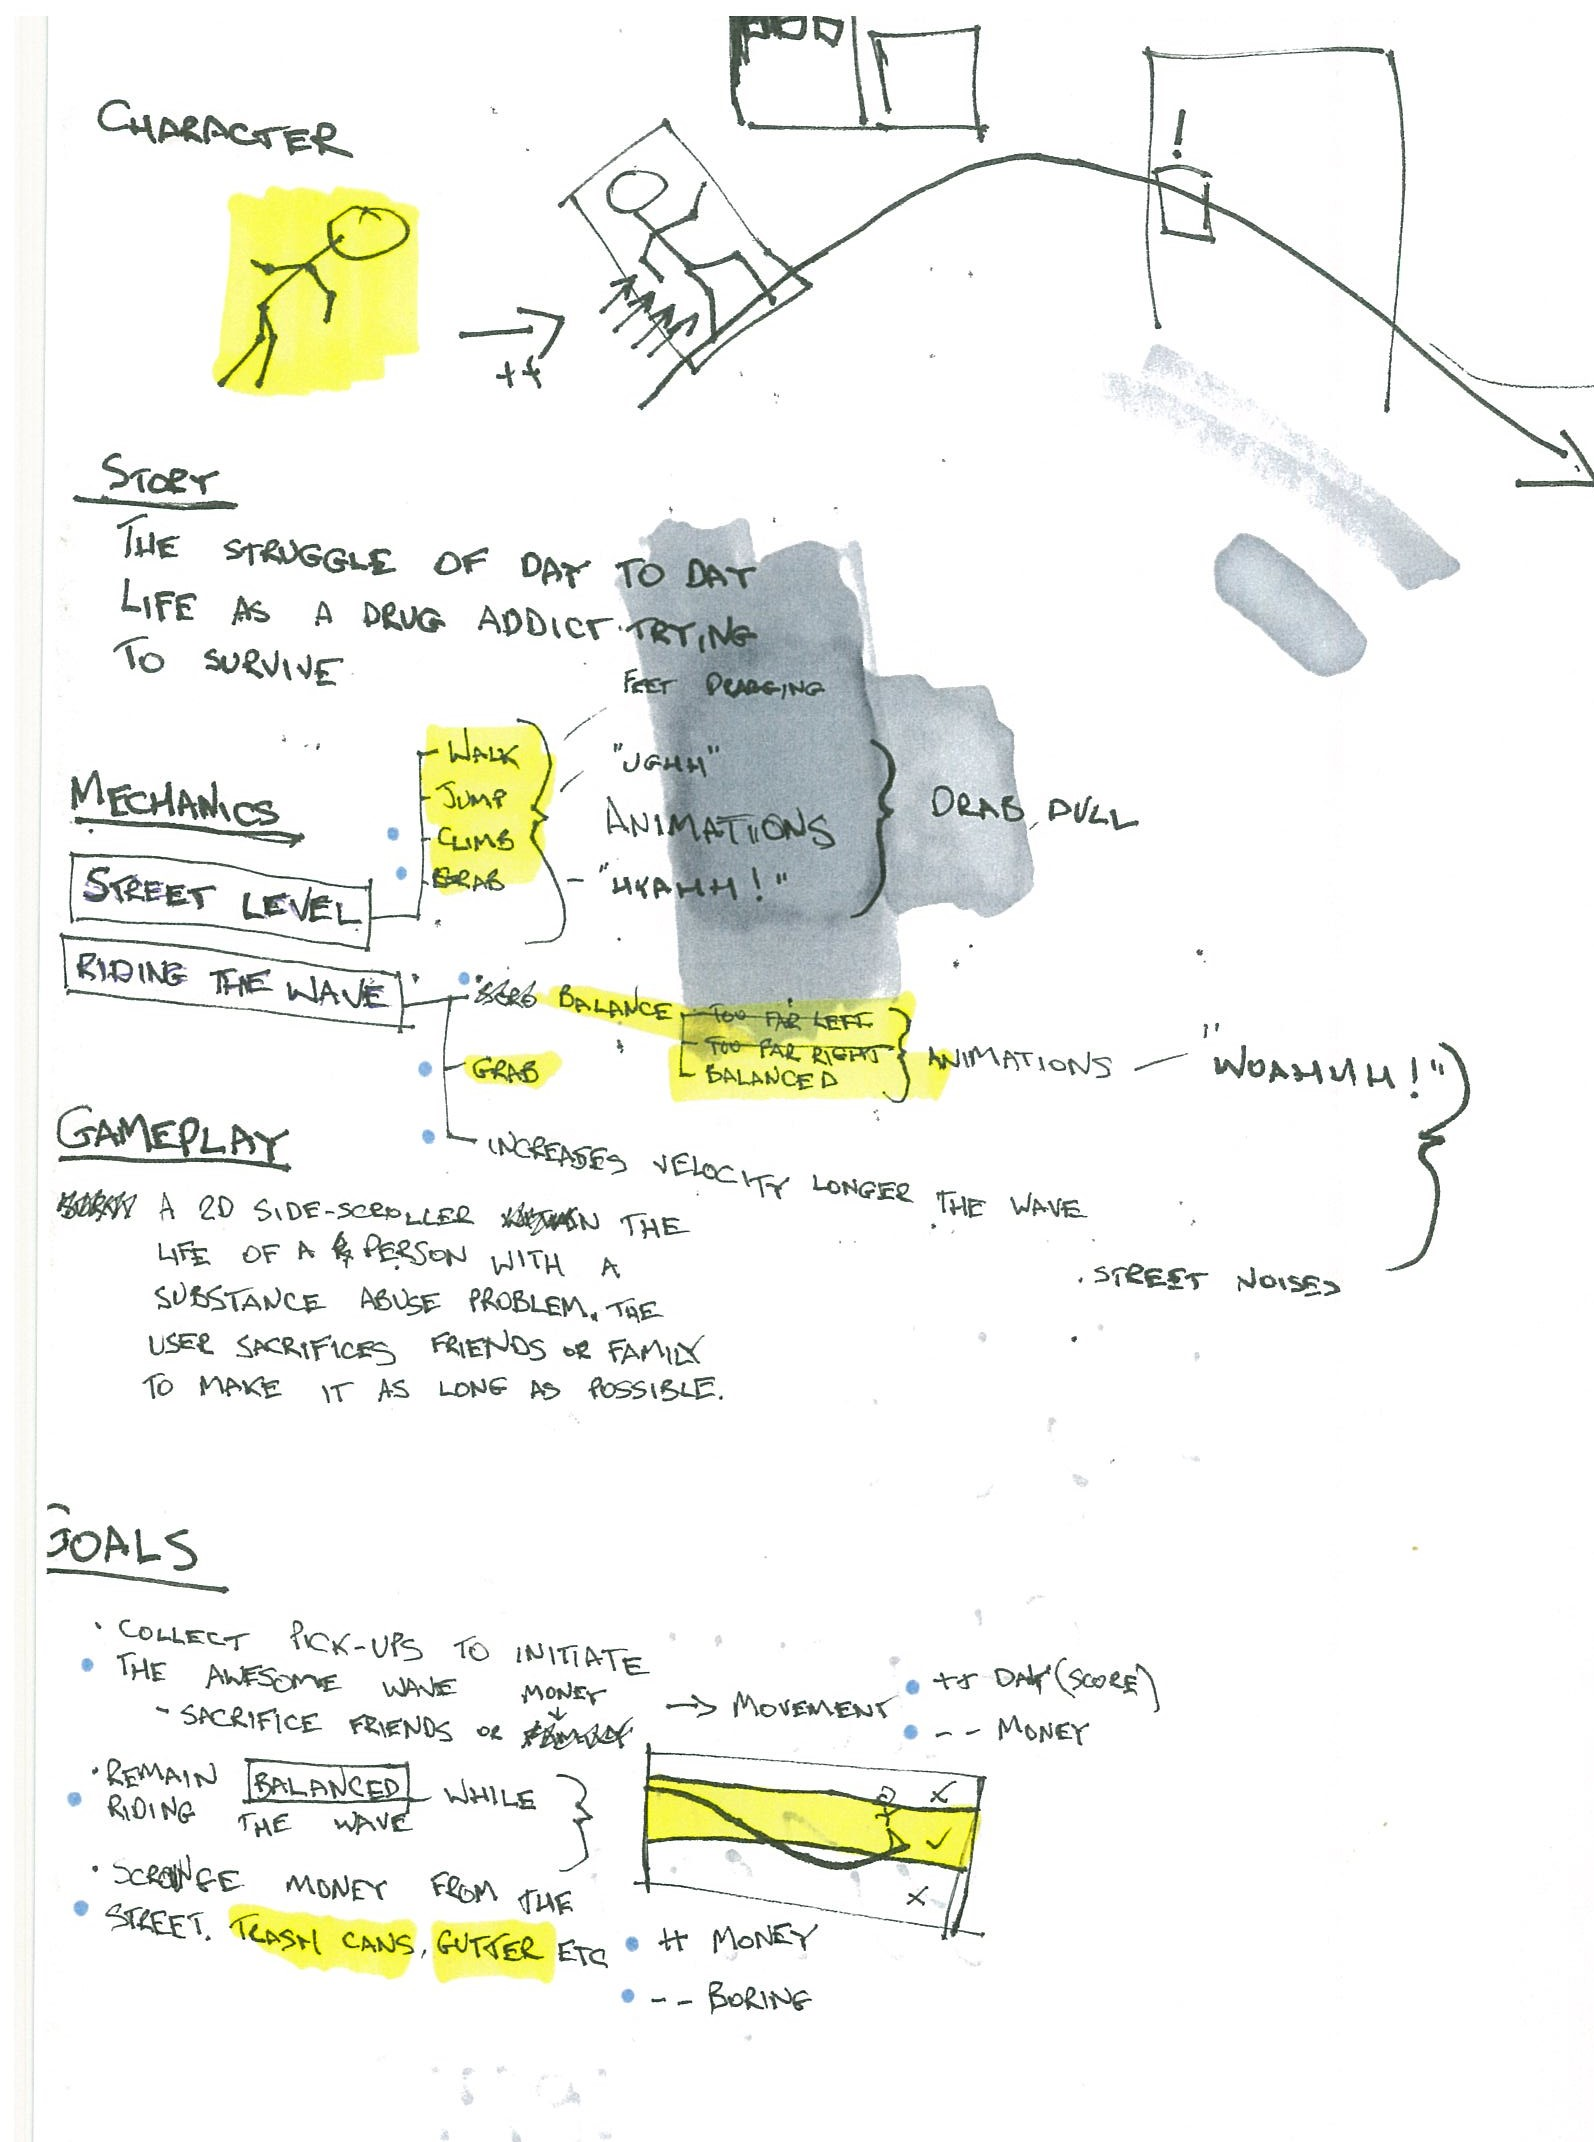 CHARACTER
!
++
STORY
THE STRUGGLE OF DAY TO DAY
LIFE AS A DRUG ADDICT TRYING
TO SURVIVE
FEET DRAGGING
MECHANICS
WALK
JUMP
CLIMB
GRAB
"UGHH"
ANIMATIONS
"HYAHH!"
DRAB, DULL
STREET LEVEL
RIDING THE WAVE
BALANCE
TOO FAR LEFT
TOO FAR RIGHT
BALANCED
ANIMATIONS — "WOAHHH!"
GRAB
INCREASES VELOCITY LONGER THE WAVE
. STREET NOISES
GAMEPLAY
A 2D SIDE-SCROLLER IN THE
LIFE OF A PERSON WITH A
SUBSTANCE ABUSE PROBLEM. THE
USER SACRIFICES FRIENDS OR FAMILY
TO MAKE IT AS LONG AS POSSIBLE.
GOALS
• COLLECT PICK-UPS TO INITIATE
THE AWESOME WAVE
MONEY
- SACRIFICE FRIENDS OR FAMILY
→ MOVEMENT
++ DAY (SCORE)
-- MONEY
• REMAIN BALANCED WHILE
RIDING THE WAVE
X
✓
X
• SCROUNGE MONEY FROM THE
STREET. TRASH CANS, GUTTER ETC
++ MONEY
-- BORING